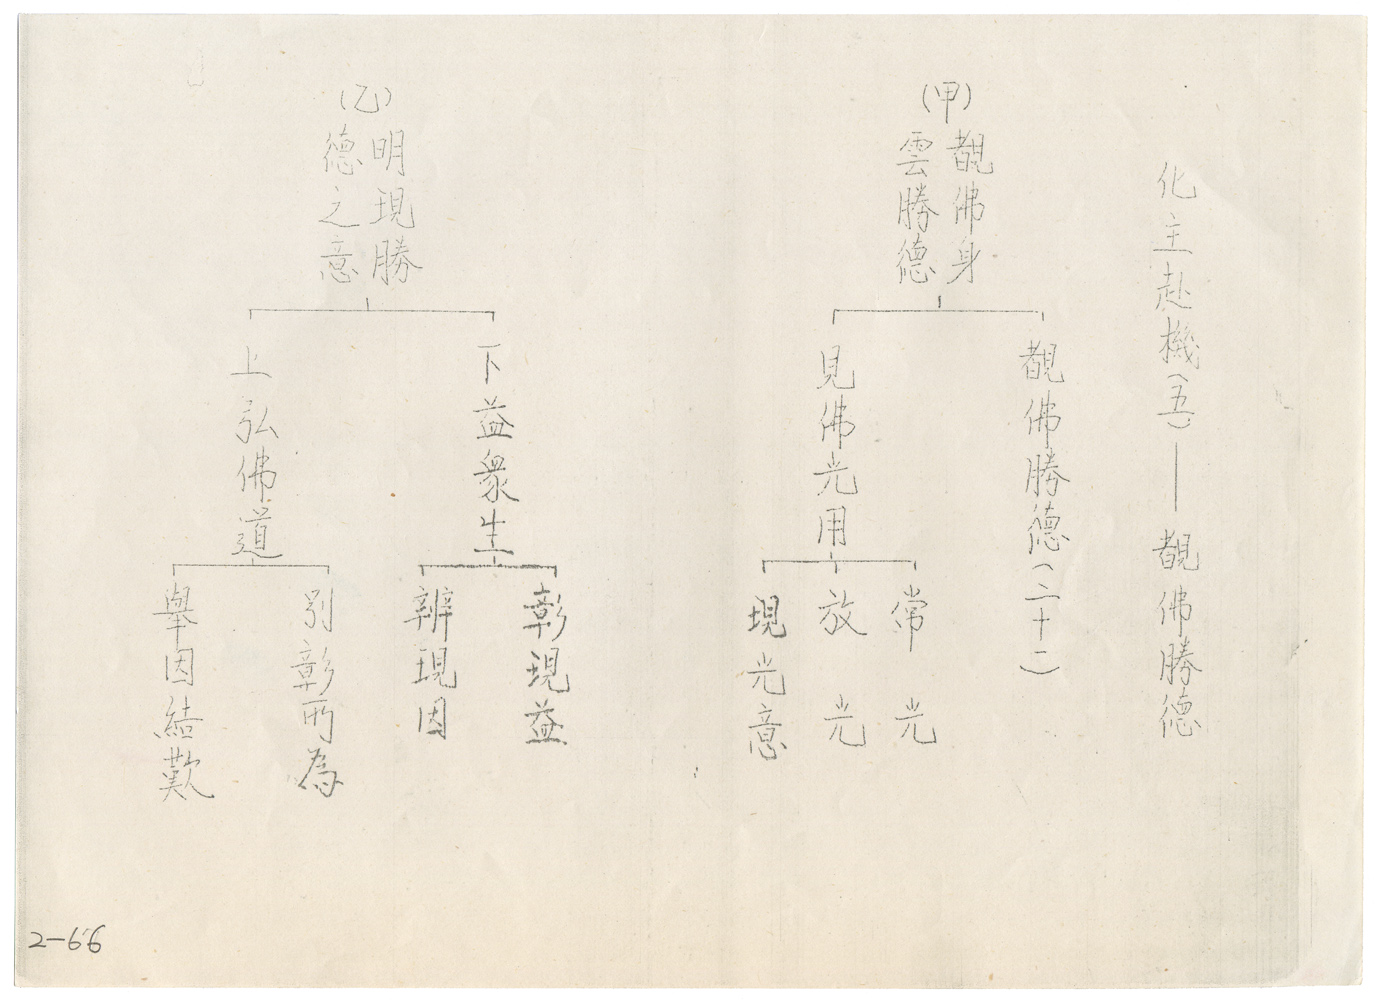 化主赴機(五)——覩佛勝德
(甲)
覩佛身
雲勝德
覩佛勝德(二十二)
見佛光用
常光
放光
現光意
(乙)
明現勝
德之意
下益衆生
彰現益
辨現因
上弘佛道
別彰所為
舉因結歎
2-66